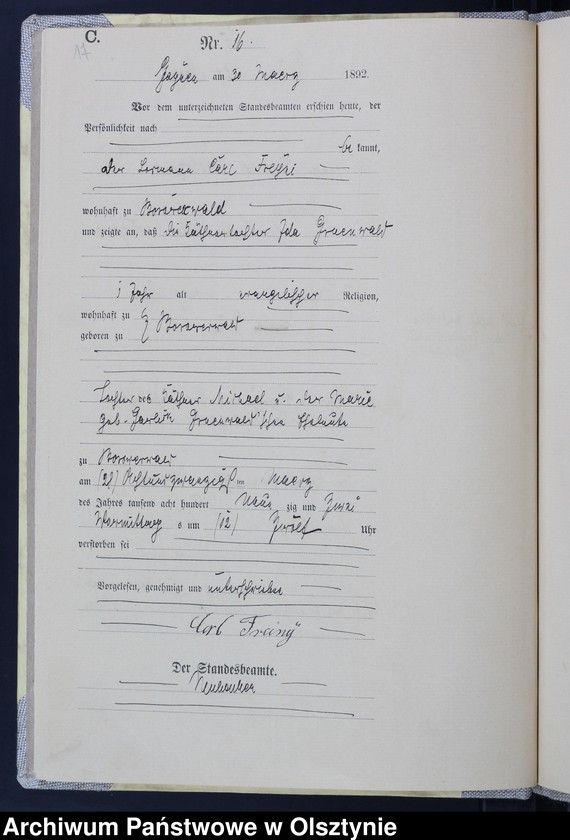 C.
17
Nr. 16.
am 30 Maerz 1892.
Vor dem unterzeichneten Standesbeamten erschien heute, der
Persönlichkeit nach
be kannt,
der Carl
wohnhaft zu
und zeigte an, daß die Käthnertochter Ida Gruenwald
1 Jahr alt evangelischer Religion,
wohnhaft zu
geboren zu
Tochter des Käthner Michael u. der Marie
geb. Gruenwald'schen Eheleute
zu
am (28) Achtundzwanzigst ten Maerz
des Jahres tausend acht hundert Neun zig und Zwei
Vormittag s um (12) Zwölf Uhr
verstorben sei
Vorgelesen, genehmigt und unterschrieben
Carl
Der Standesbeamte.
Archiwum Państwowe w Olsztynie